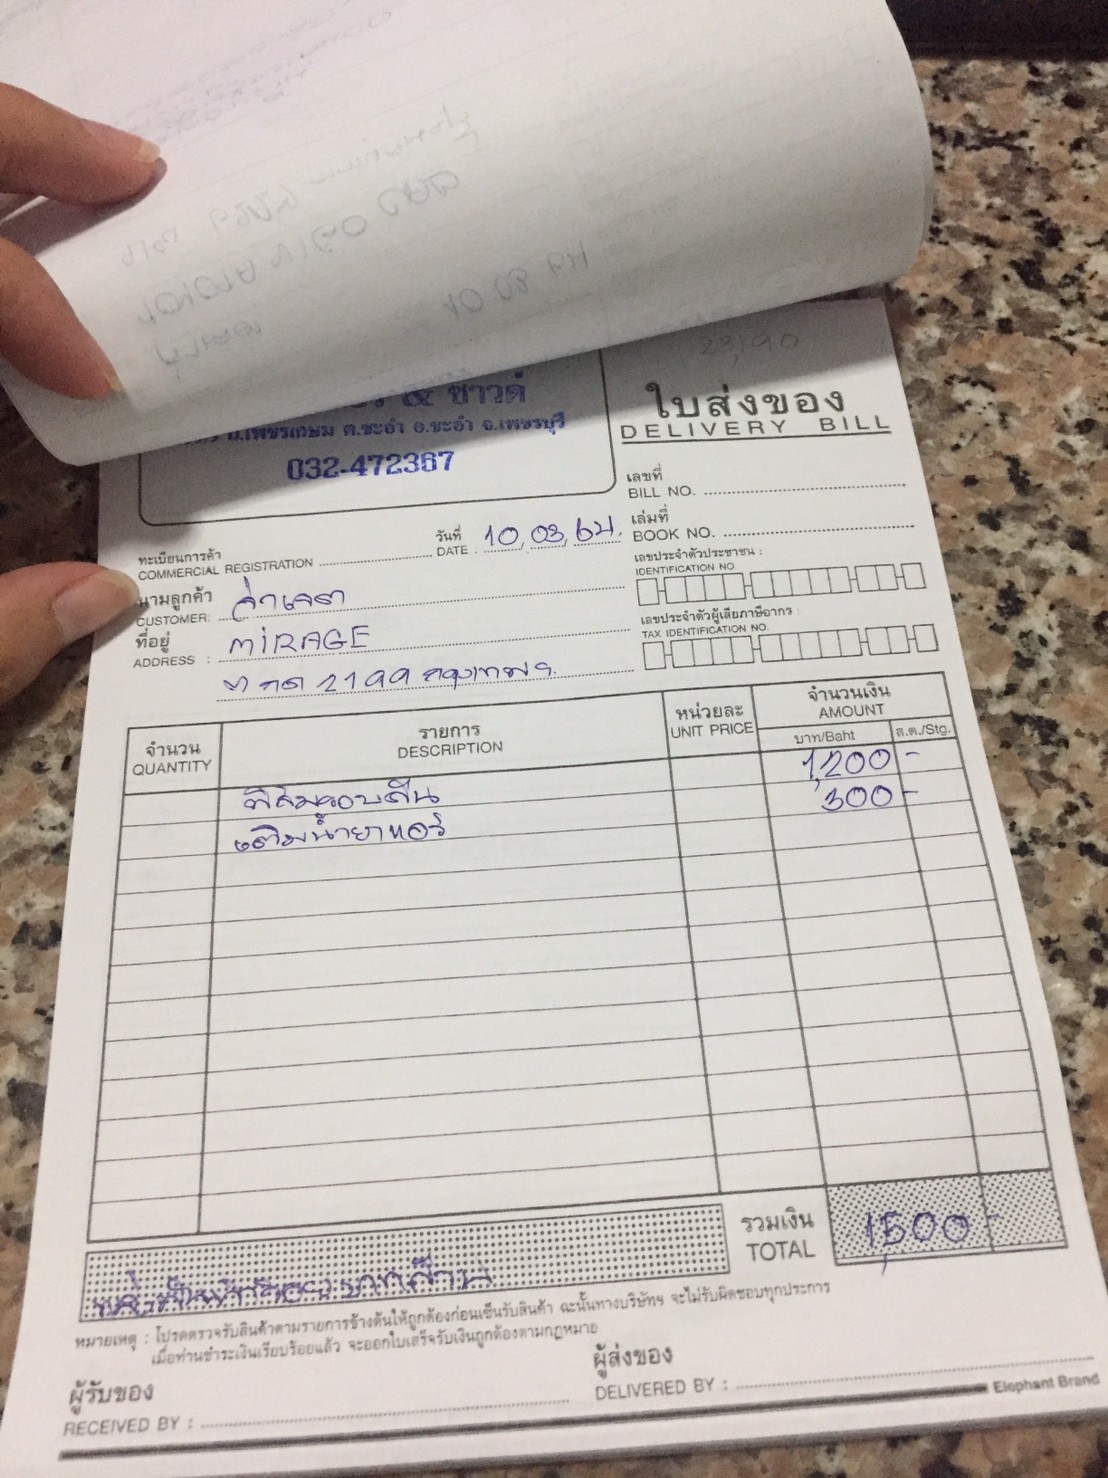 & ซาวด์
ถ.เพชรเกษม ต.ชะอำ อ.ชะอำ จ.เพชรบุรี
032-472367
ใบส่งของ
DELIVERY BILL
เลขที่
BILL NO.
เล่มที่
BOOK NO.
วันที่
DATE : 10, 03, 64.
ทะเบียนการค้า
COMMERCIAL REGISTRATION
เลขประจำตัวประชาชน :
IDENTIFICATION NO
นามลูกค้า
CUSTOMER:
เลขประจำตัวผู้เสียภาษีอากร :
TAX IDENTIFICATION NO.
ที่อยู่ MIRAGE
ADDRESS :
กต 2199 กรุงเทพฯ
จำนวน
QUANTITY
รายการ
DESCRIPTION
หน่วยละ
UNIT PRICE
จำนวนเงิน
AMOUNT
บาท/Baht
ส.ต./Stg.
ฟิล์มรอบคัน 1,200 -
เติมน้ำยาแอร์ 300 -
รวมเงิน
TOTAL 1,500 -
หมายเหตุ : โปรดตรวจรับสินค้าตามรายการข้างต้นให้ถูกต้องก่อนเซ็นรับสินค้า ฉะนั้นทางบริษัทฯ จะไม่รับผิดชอบทุกประการ
เมื่อท่านชำระเงินเรียบร้อยแล้ว จะออกใบเสร็จรับเงินถูกต้องตามกฎหมาย
ผู้รับของ
RECEIVED BY :
ผู้ส่งของ
DELIVERED BY :
Elephant Brand